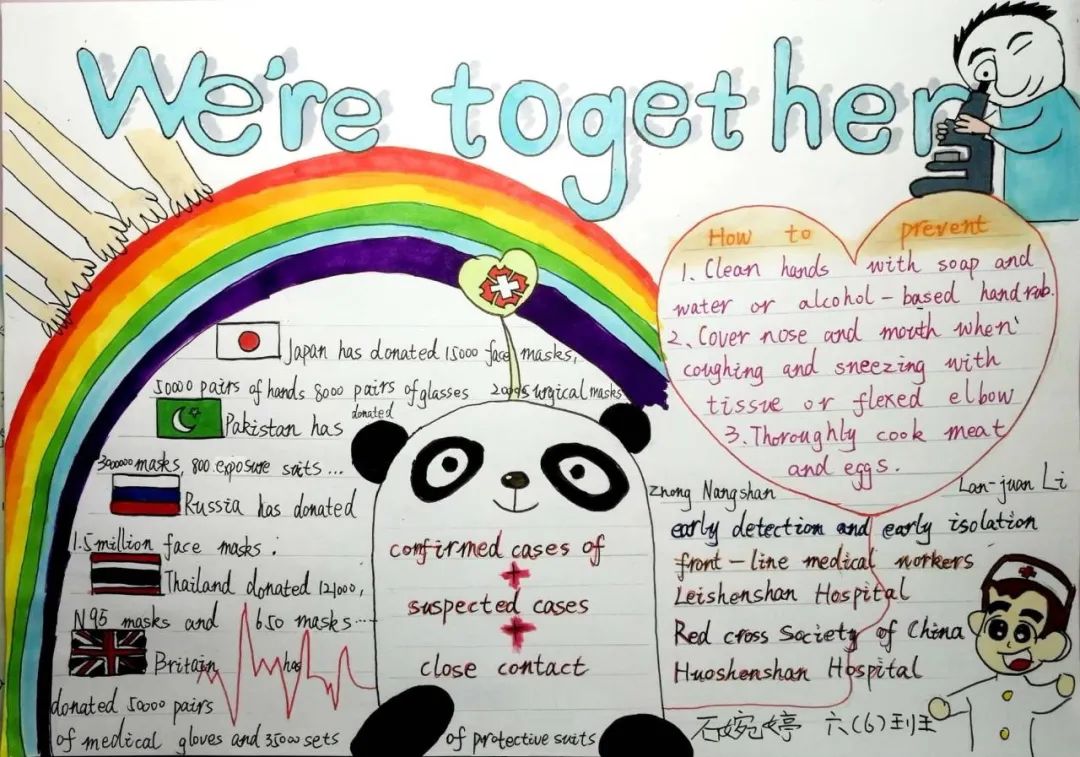 We're together
How to prevent
1. Clean hands with soap and
water or alcohol-based handrub.
2. Cover nose and mouth when
coughing and sneezing with
tissue or flexed elbow
3. Thoroughly cook meat
and eggs.
Japan has donated 15000 face masks,
50000 pairs of hands 8000 pairs of glasses 20000 surgical masks
Pakistan has donated
3000000 masks, 800 exposure suits...
Russia has donated
1.5 million face masks:
Thailand donated 121000,
N95 masks and 1650 masks...
Britain has
donated 50000 pairs
of medical gloves and 35000 sets of protective suits
confirmed cases of
+
suspected cases
+
close contact
Zhong Nangshan Lan-juan Li
early detection and early isolation
front-line medical workers
Leishenshan Hospital
Red cross Society of China
Huoshenshan Hospital
石婉婷 六(6)班